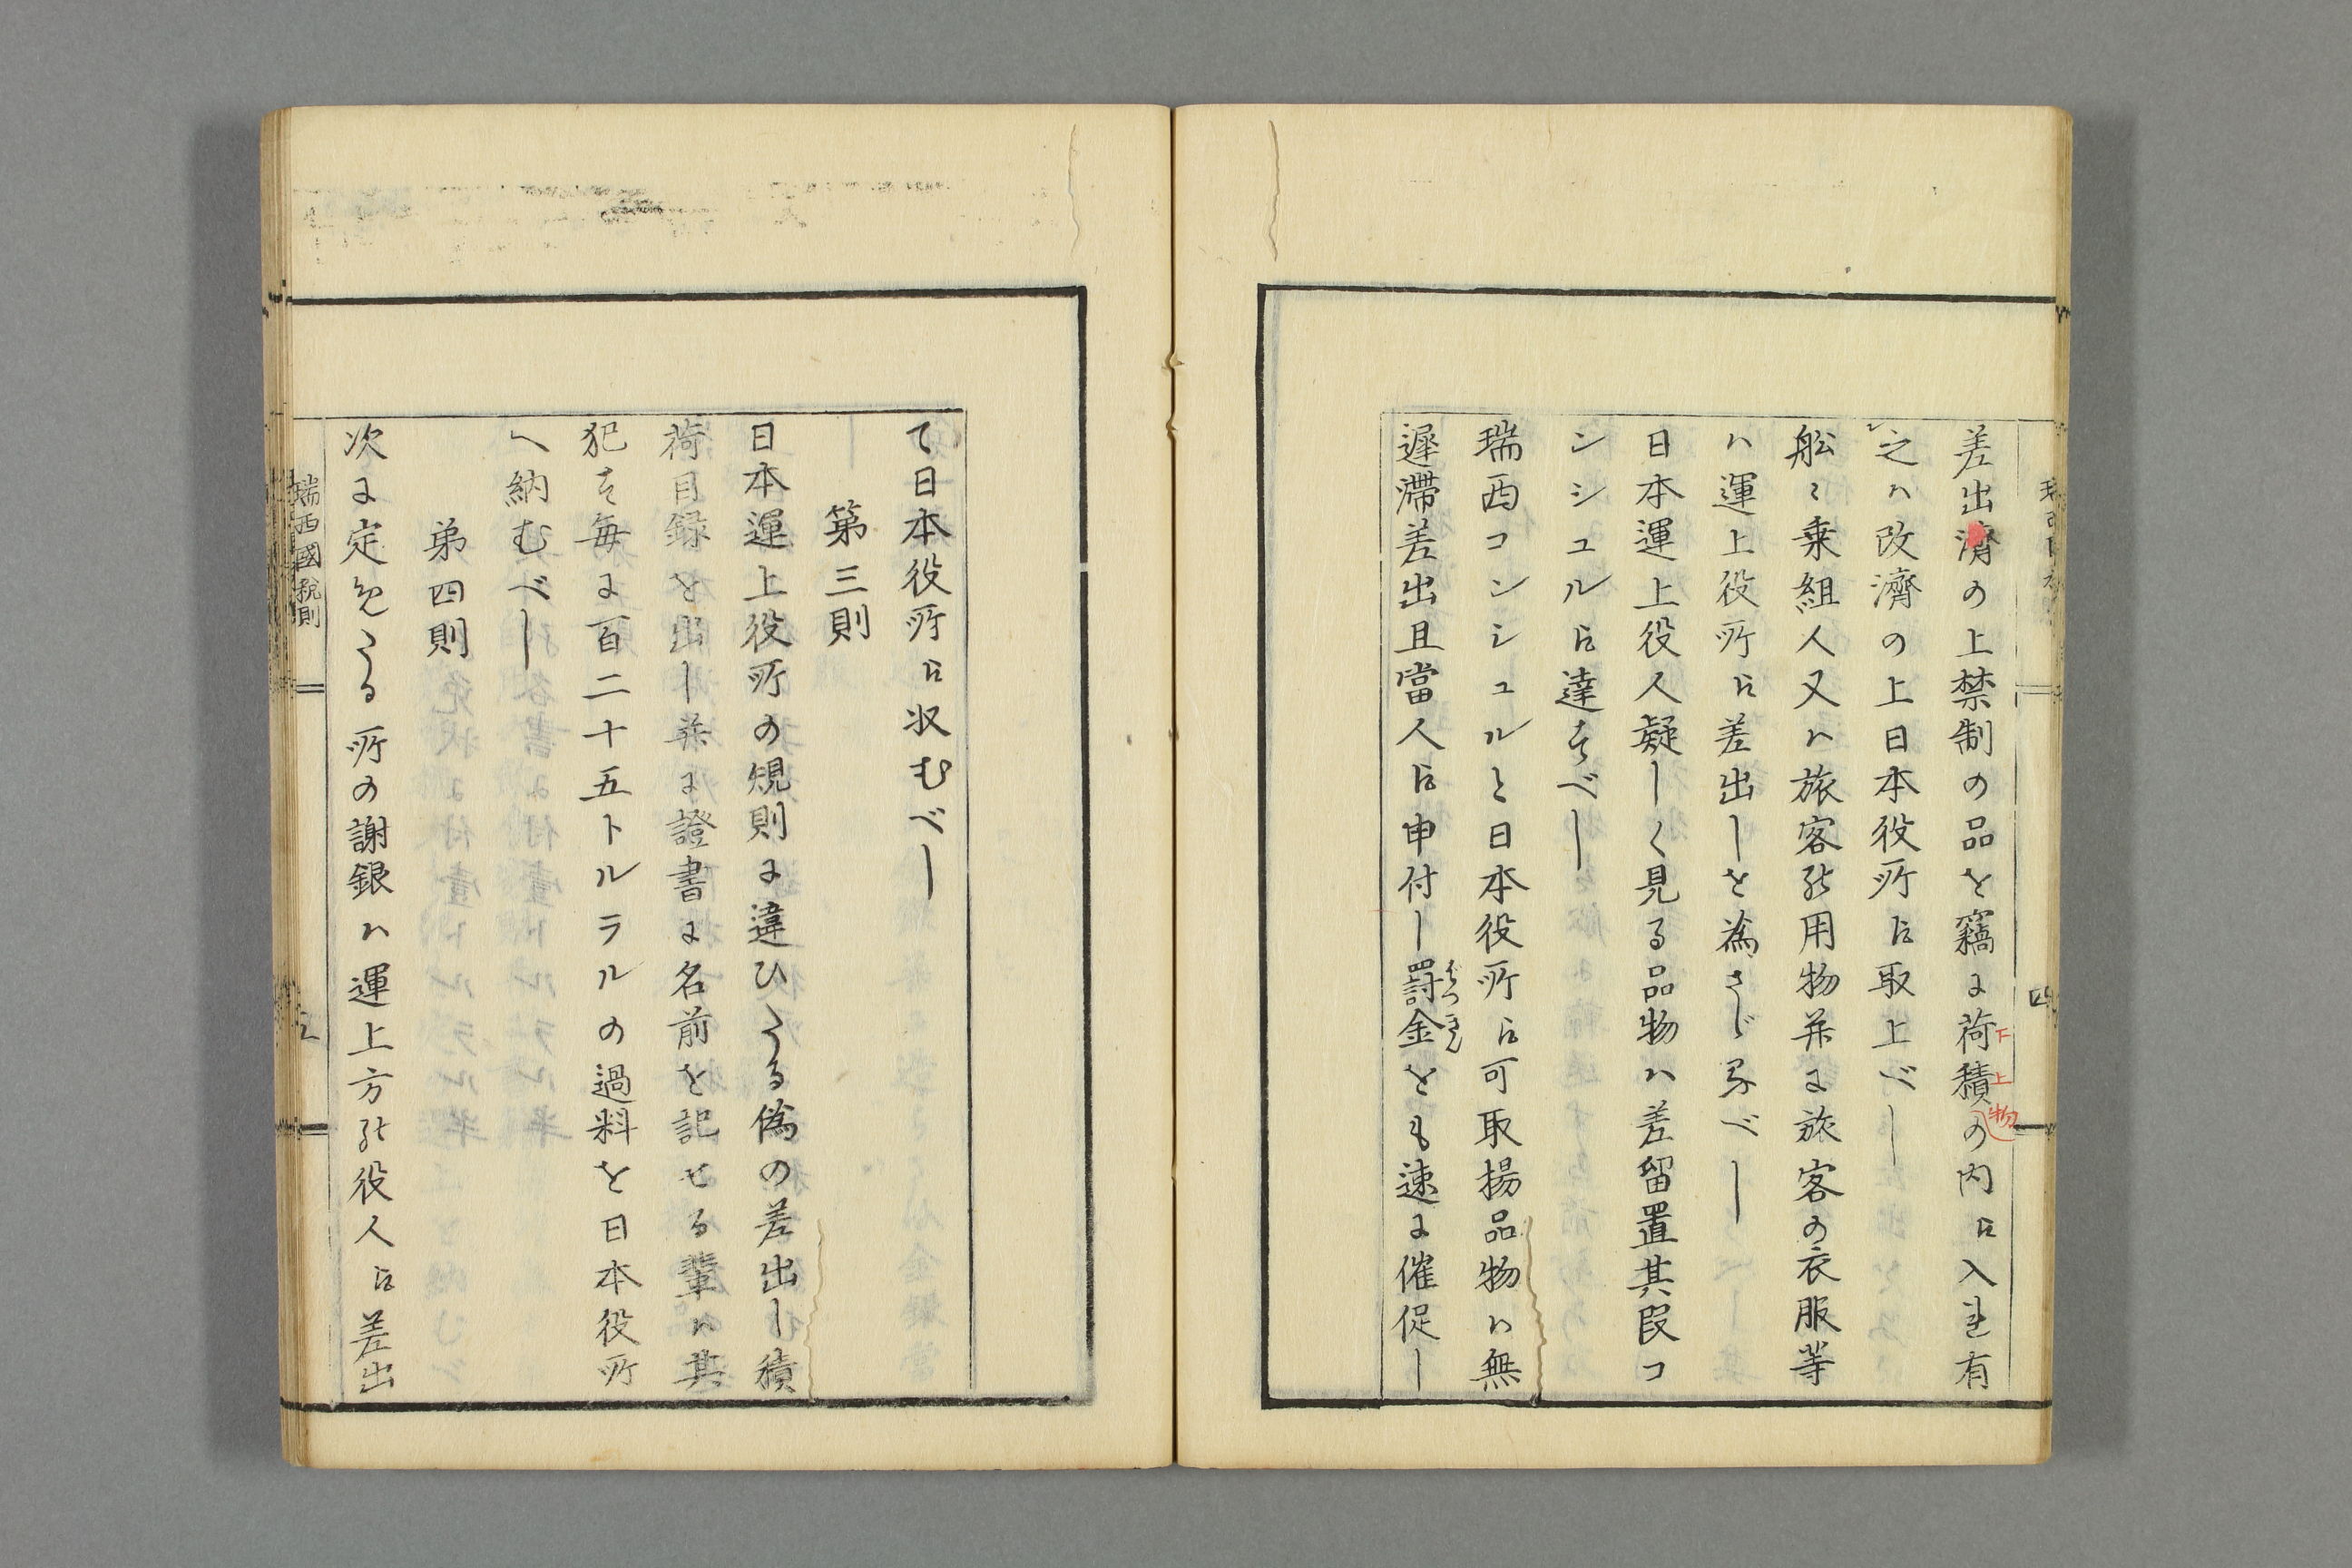 差出濟の上禁制の品を竊に荷積の内に入れ有
下
上
物
之ハ改濟の上日本役所に取上べし
舩々乗組人又ハ旅客の用物并に旅客の衣服等
ハ運上役所に差出しを為さゞるべし
日本運上役人疑しく見る品物ハ差留置其段コ
ンシユルに達すべし
瑞西コンシユルと日本役所に可取揚品物ハ無
遅滞差出且當人に申付し罰金とも速に催促し
ばつきん
四
て日本役所に収むべし
第三則
日本運上役所の規則に違ひたる偽の差出し積
荷目録を出し并に證書に名前を記せる輩ハ其
犯す毎に百二十五トルラルの過料を日本役所
へ納むべし
弟四則
次に定めたる所の謝銀ハ運上方の役人に差出
瑞西國税則